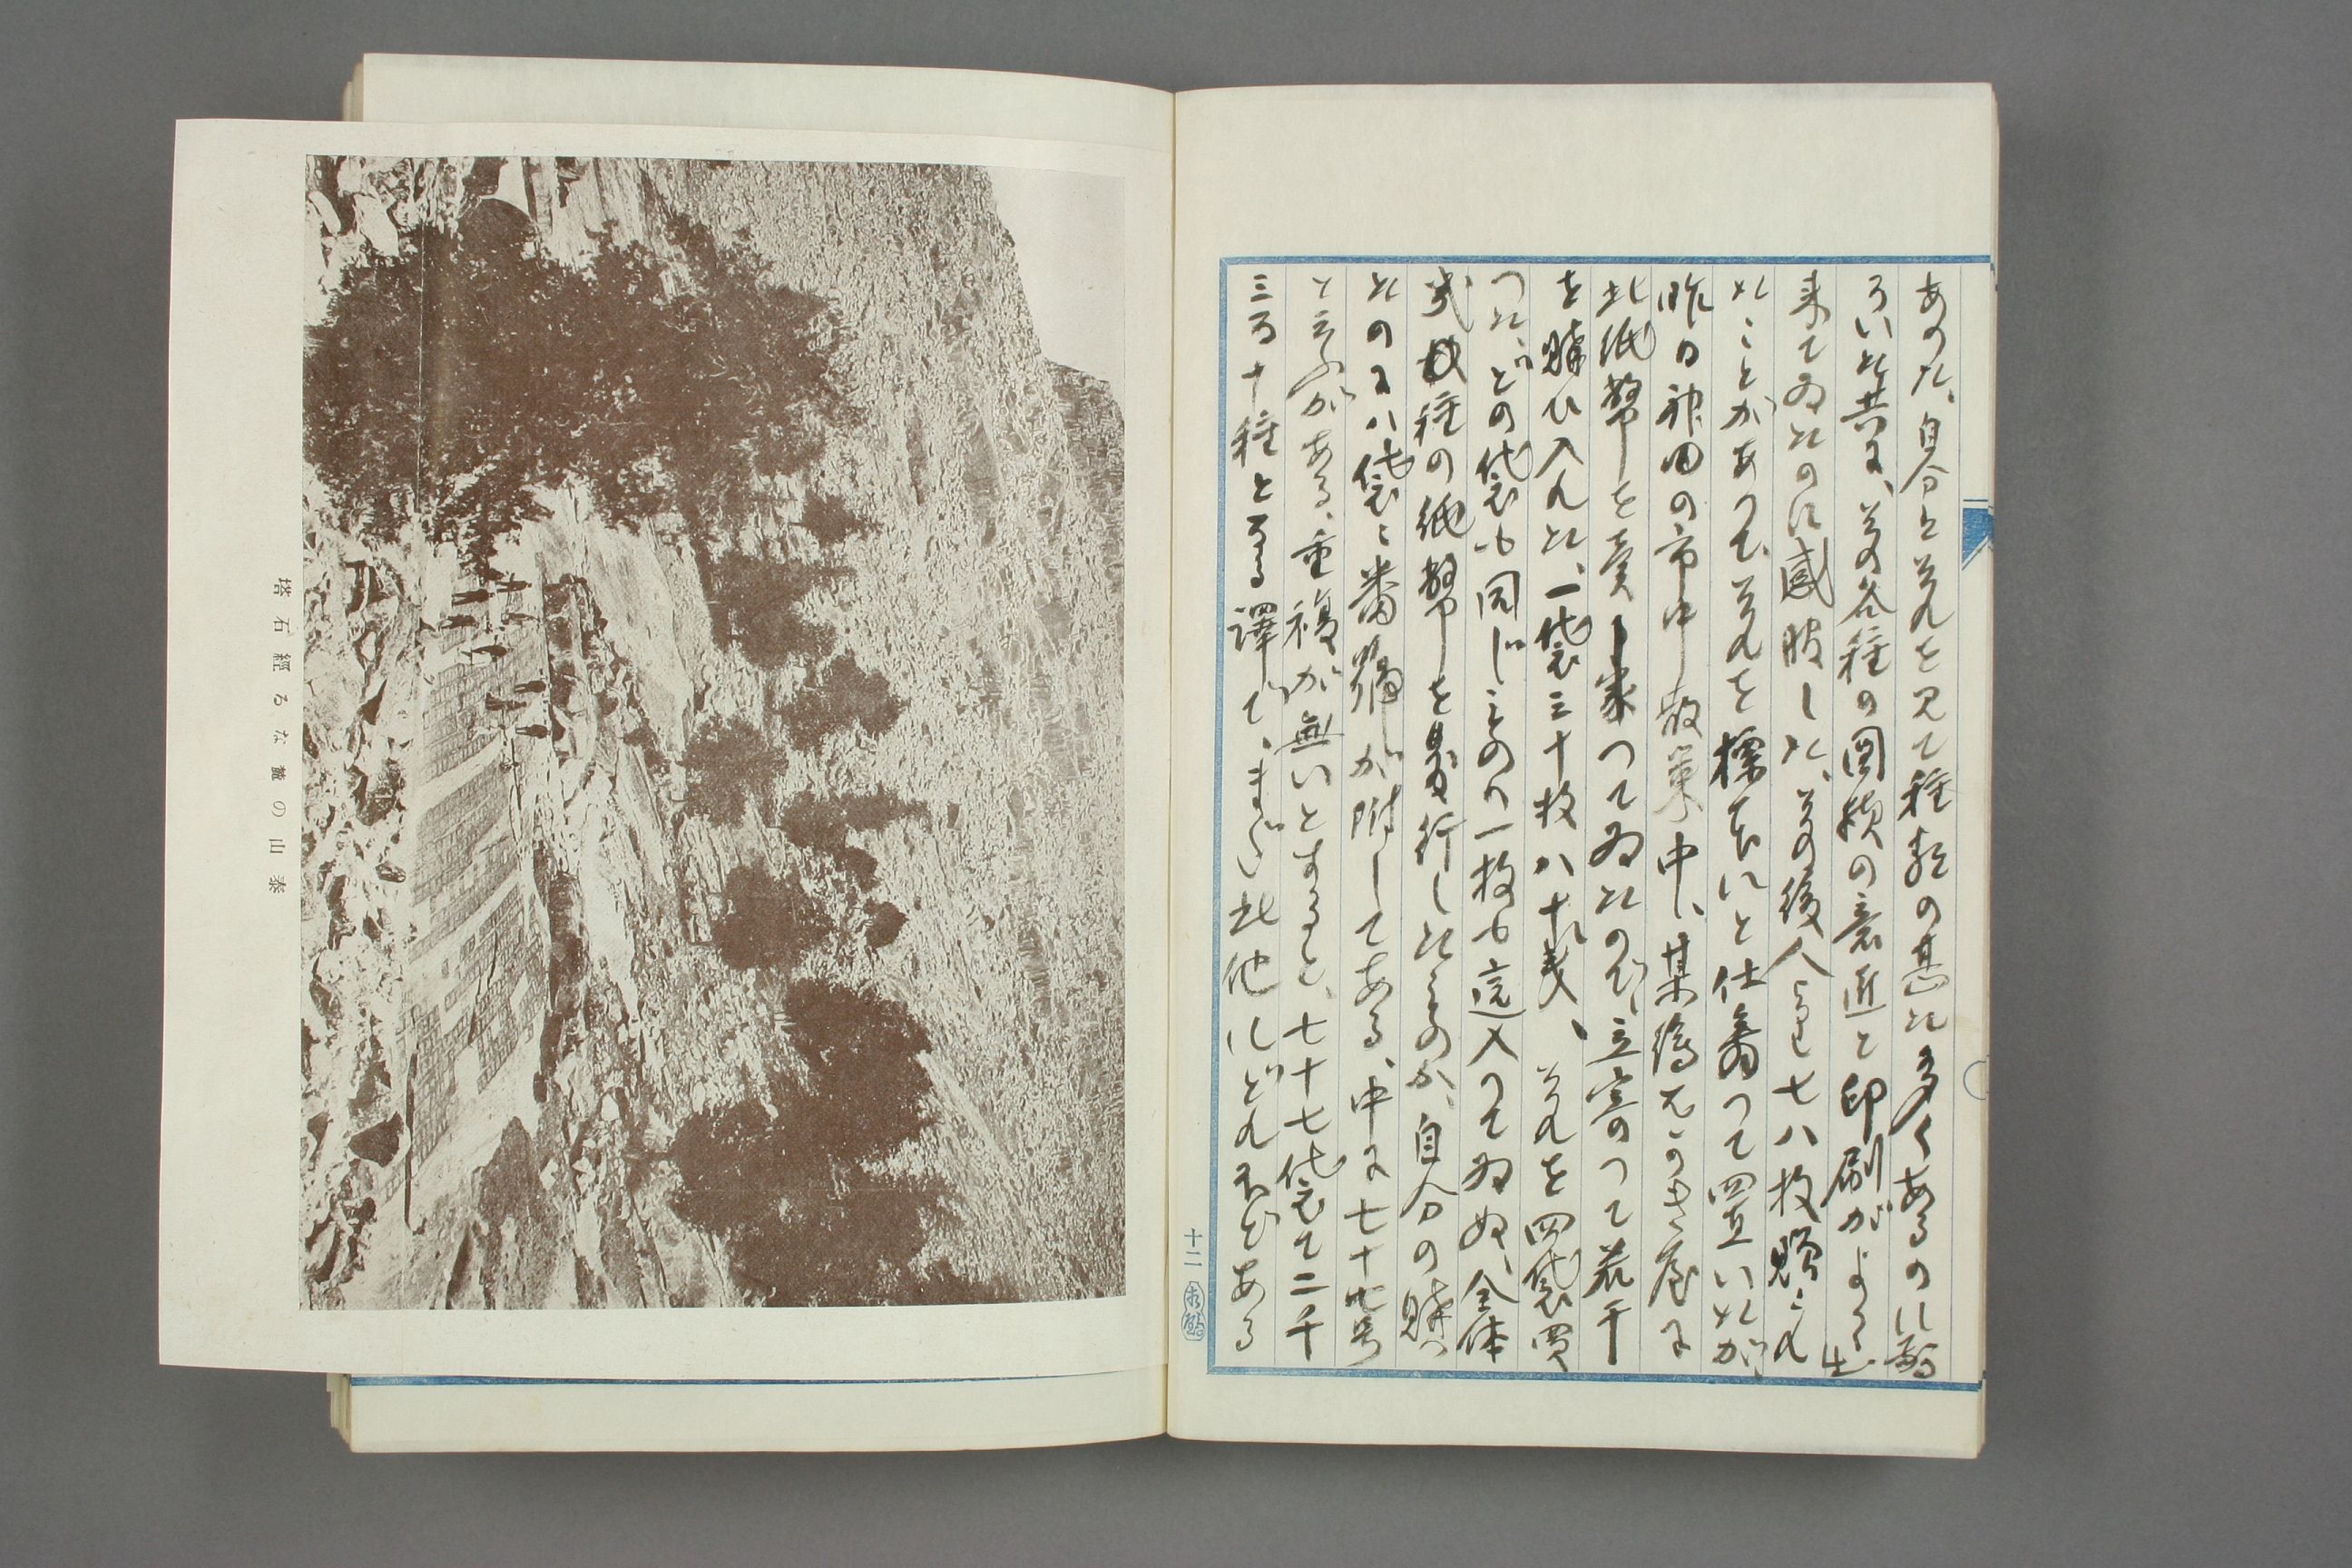 あつた、自分はそれを見て種類の甚た多くあるのに驚
ろいた共に、其の各種の図様の意匠と印刷がよく出
来てゐたのに感服した、其後人から七八枚贈られ
たことがあつて、それを標本にと仕舞つて置いたが、
昨日神田の市中散策中、某
此紙幣を売つてゐたので、立寄つて若干
を購ひ入れた、一袋三十枚八十銭、それを四袋買
つた、どの袋も同じものの一枚も這入つてゐぬ、全体
弐種の紙幣を発行したものか、自分の購つ
たのには袋に番号が附してある、中に七十七号
と云ふがある、重複が無いとすると、七十七袋で二千
三百十種となる訳で、まだ此他にどれほどある
十二
泰山の麓なる經石塔